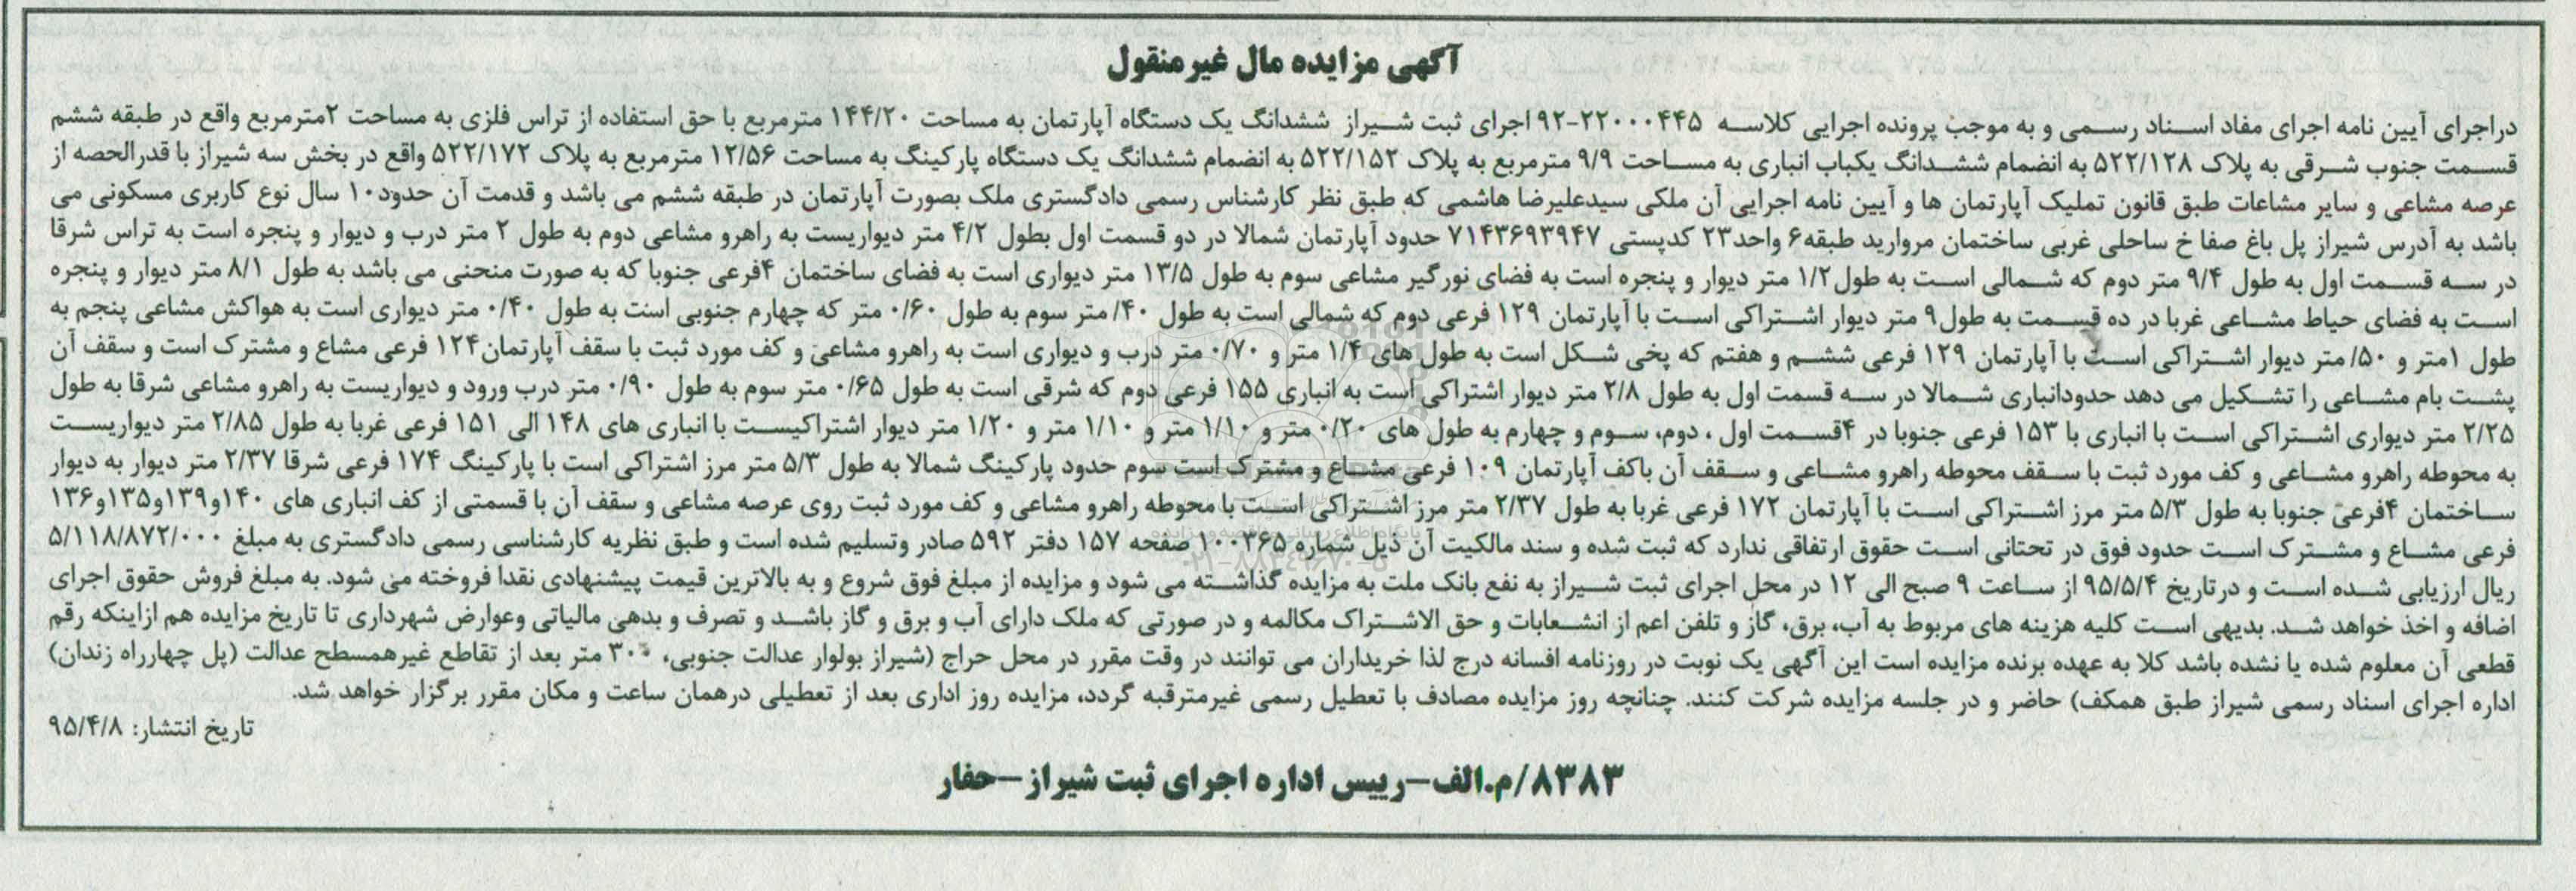 آگهی مزایده مال غیرمنقول
دراجرای آیین نامه اجرای مفاد اسناد رسمی و به موجب پرونده اجرایی کلاسه ۲۲۰۰۰۴۴۵-۹۲ اجرای ثبت شیراز ششدانگ یک دستگاه آپارتمان به مساحت ۱۴۴/۲۰ مترمربع با حق استفاده از تراس فلزی به مساحت ۲مترمربع واقع در طبقه ششم
قسمت جنوب شرقی به پلاک ۵۲۲/۱۲۸ به انضمام ششدانگ یکباب انباری به مساحت ۹/۹ مترمربع به پلاک ۵۲۲/۱۵۲ به انضمام ششدانگ یک دستگاه پارکینگ به مساحت ۱۲/۵۶ مترمربع به پلاک ۵۲۲/۱۷۲ واقع در بخش سه شیراز با قدرالحصه از
عرصه مشاعی و سایر مشاعات طبق قانون تملیک آپارتمان ها و آیین نامه اجرایی آن ملکی سیدعلیرضا هاشمی که طبق نظر کارشناس رسمی دادگستری ملک بصورت آپارتمان در طبقه ششم می باشد و قدمت آن حدود۱۰ سال نوع کاربری مسکونی می
باشد به آدرس شیراز پل باغ صفا خ ساحلی غربی ساختمان مروارید طبقه۶ واحد۲۳ کدپستی ۷۱۴۳۶۹۳۹۴۷ حدود آپارتمان شمالا در دو قسمت اول بطول ۴/۲ متر دیواریست به راهرو مشاعی دوم به طول ۲ متر درب و دیوار و پنجره است به تراس شرقا
در سه قسمت اول به طول ۹/۴ متر دوم که شمالی است به طول۱/۲ متر دیوار و پنجره است به فضای نورگیر مشاعی سوم به طول ۱۳/۵ متر دیواری است به فضای ساختمان ۴فرعی جنوبا که به صورت منحنی می باشد به طول ۸/۱ متر دیوار و پنجره
است به فضای حیاط مشاعی غربا در ده قسمت به طول۹ متر دیوار اشتراکی است با آپارتمان ۱۲۹ فرعی دوم که شمالی است به طول ۴۰/ متر سوم به طول ۰/۶۰ متر که چهارم جنوبی است به طول ۰/۴۰ متر دیواری است به هواکش مشاعی پنجم به
طول ۱متر و ۵۰/ متر دیوار اشتراکی است با آپارتمان ۱۲۹ فرعی ششم و هفتم که پخی شکل است به طول های ۱/۴ متر و ۰/۷۰ متر درب و دیواری است به راهرو مشاعی و کف مورد ثبت با سقف آپارتمان۱۲۴ فرعی مشاع و مشترک است و سقف آن
پشت بام مشاعی را تشکیل می دهد حدودانباری شمالا در سه قسمت اول به طول ۲/۸ متر دیوار اشتراکی است به انباری ۱۵۵ فرعی دوم که شرقی است به طول ۰/۶۵ متر سوم به طول ۰/۹۰ متر درب ورود و دیواریست به راهرو مشاعی شرقا به طول
۲/۲۵ متر دیواری اشتراکی است با انباری با ۱۵۳ فرعی جنوبا در ۴قسمت اول ، دوم، سوم و چهارم به طول های ۰/۲۰ متر و ۱/۱۰ متر و ۱/۱۰ متر و ۱/۲۰ متر دیوار اشتراکیست با انباری های ۱۴۸ الی ۱۵۱ فرعی غربا به طول ۲/۸۵ متر دیواریست
به محوطه راهرو مشاعی و کف مورد ثبت با سقف محوطه راهرو مشاعی و سقف آن باکف آپارتمان ۱۰۹ فرعی مشاع و مشترک است سوم حدود پارکینگ شمالا به طول ۵/۳ متر مرز اشتراکی است با پارکینگ ۱۷۴ فرعی شرقا ۲/۳۷ متر دیوار به دیوار
ساختمان ۴فرعی جنوبا به طول ۵/۳ متر مرز اشتراکی است با آپارتمان ۱۷۲ فرعی غربا به طول ۲/۳۷ متر مرز اشتراکی است با محوطه راهرو مشاعی و کف مورد ثبت روی عرصه مشاعی و سقف آن با قسمتی از کف انباری های ۱۴۰و۱۳۹و۱۳۵و۱۳۶
فرعی مشاع و مشترک است حدود فوق در تحتانی است حقوق ارتفاقی ندارد که ثبت شده و سند مالکیت آن ذیل شماره ۱۰۰۳۶۵ صفحه ۱۵۷ دفتر ۵۹۲ صادر وتسلیم شده است و طبق نظریه کارشناسی رسمی دادگستری به مبلغ ۵/۱۱۸/۸۷۲/۰۰۰
ریال ارزیابی شده است و درتاریخ ۹۵/۵/۴ از ساعت ۹ صبح الی ۱۲ در محل اجرای ثبت شیراز به نفع بانک ملت به مزایده گذاشته می شود و مزایده از مبلغ فوق شروع و به بالاترین قیمت پیشنهادی نقدا فروخته می شود. به مبلغ فروش حقوق اجرای
اضافه و اخذ خواهد شد. بدیهی است کلیه هزینه های مربوط به آب، برق، گاز و تلفن اعم از انشعابات و حق الاشتراک مکالمه و در صورتی که ملک دارای آب و برق و گاز باشد و تصرف و بدهی مالیاتی وعوارض شهرداری تا تاریخ مزایده هم ازاینکه رقم
قطعی آن معلوم شده یا نشده باشد کلا به عهده برنده مزایده است این آگهی یک نوبت در روزنامه افسانه درج لذا خریداران می توانند در وقت مقرر در محل حراج (شیراز بولوار عدالت جنوبی، ۳۰۰ متر بعد از تقاطع غیرهمسطح عدالت (پل چهارراه زندان)
اداره اجرای اسناد رسمی شیراز طبق همکف) حاضر و در جلسه مزایده شرکت کنند. چنانچه روز مزایده مصادف با تعطیل رسمی غیرمترقبه گردد، مزایده روز اداری بعد از تعطیلی درهمان ساعت و مکان مقرر برگزار خواهد شد.
تاریخ انتشار: ۹۵/۴/۸
۸۳۸۳/م.الف-رییس اداره اجرای ثبت شیراز-حفار